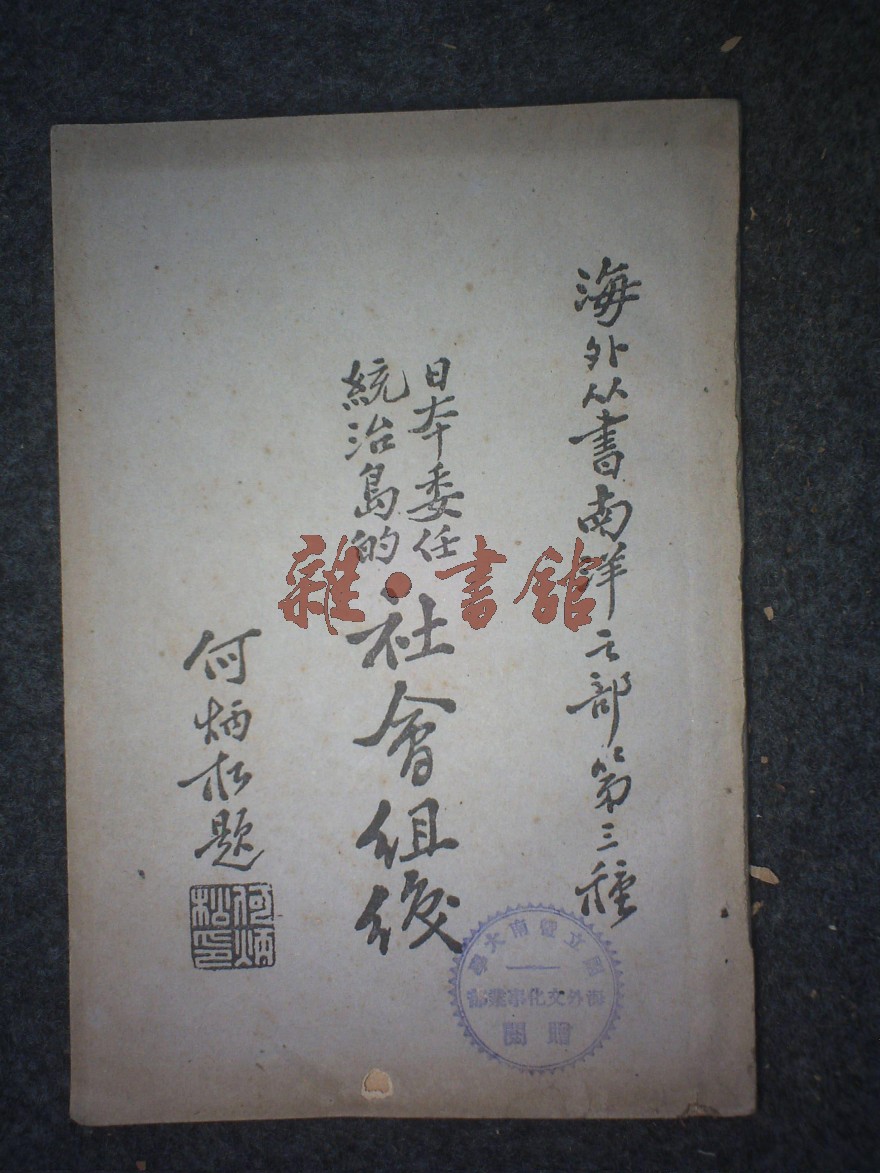 海外从書南洋之部第三種
日本委任
統治島的
社會組織
何炳松題
何炳
松印
國立暨南大學
海外文化事業部
贈閱
雜·書館